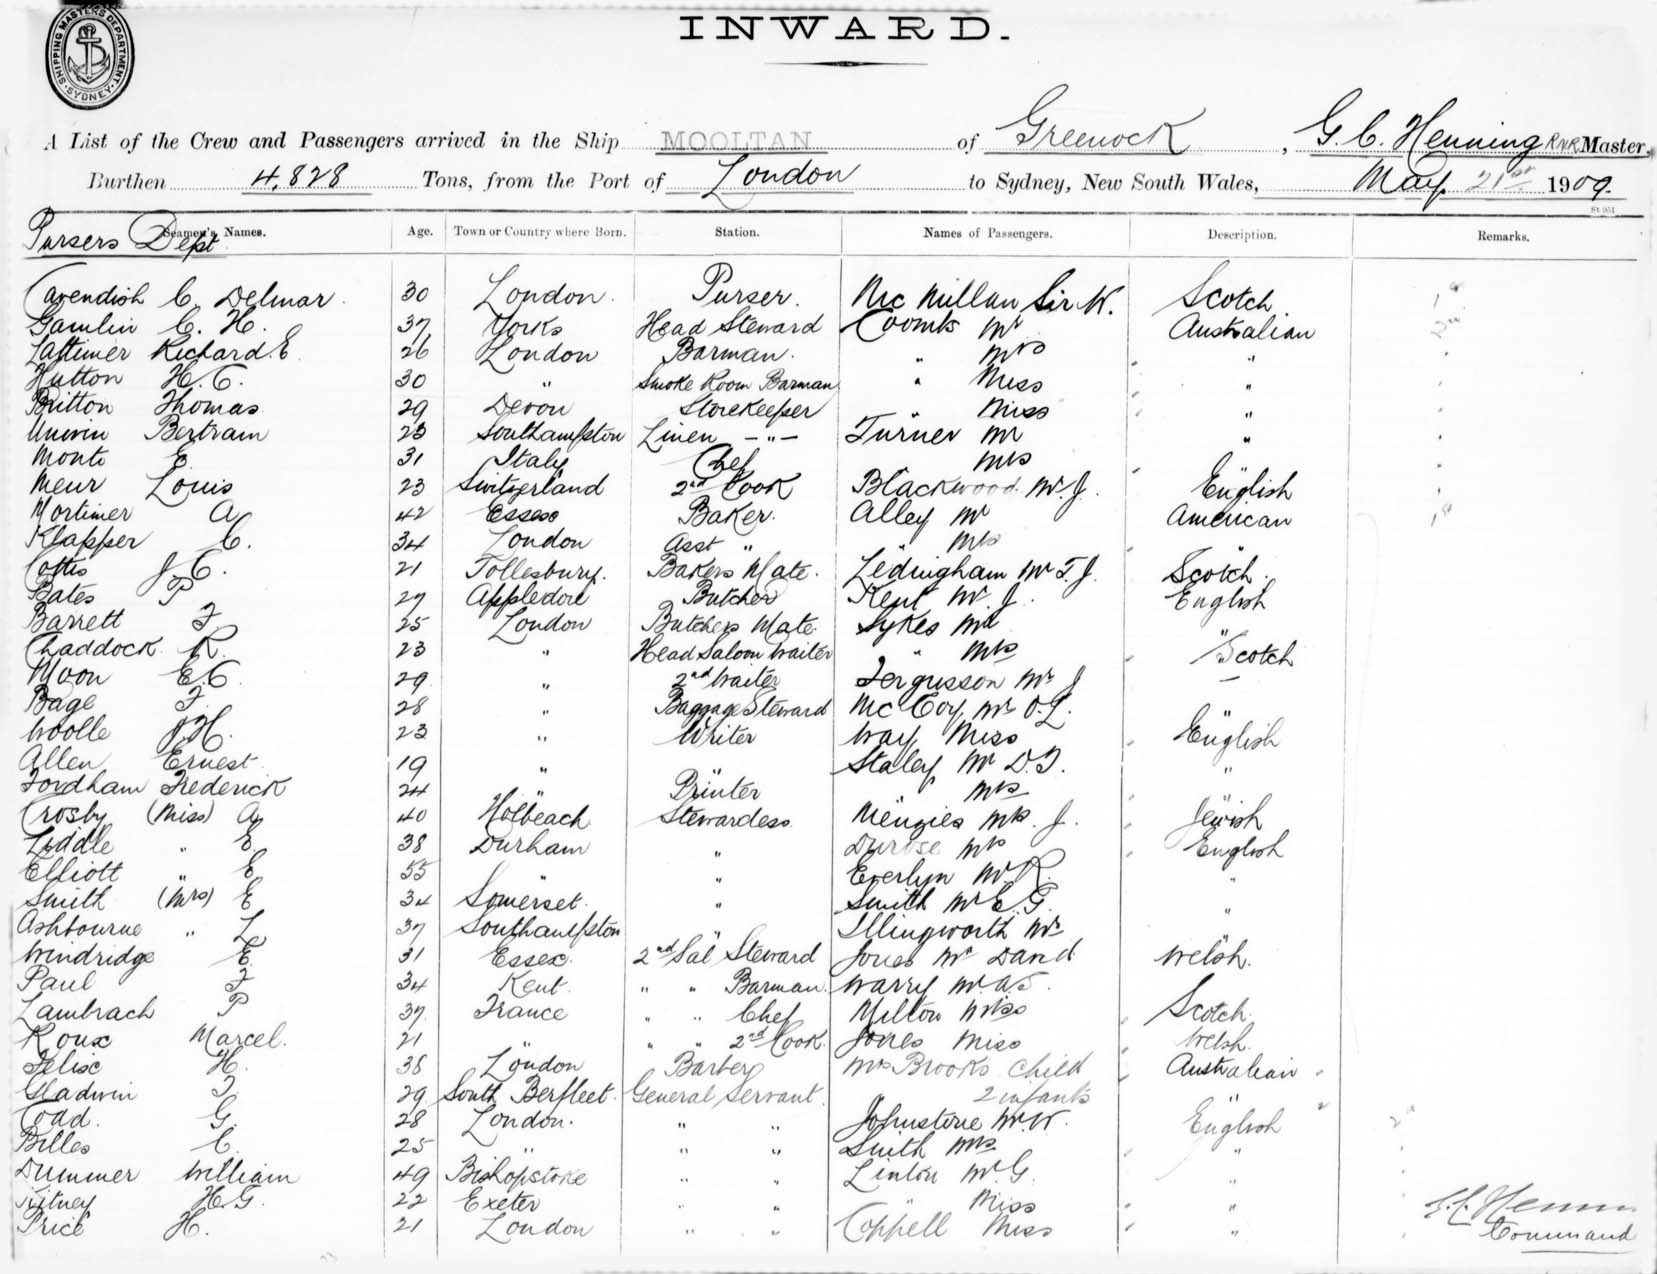 INWARD.
SHIPPING MASTERS DEPARTMENT SYDNEY
A List of the Crew and Passengers arrived in the Ship MOOLTAN of Greenock, G. C. Henning RNR Master,
Burthen 4,828 Tons, from the Port of London to Sydney, New South Wales, May 21st 1909.
St 951
Seamen's Names. Age. Town or Country where Born. Station. Names of Passengers. Description. Remarks.
Pursers Dept
Cavendish C. Delmar. 30 London. Purser. McMillan Sir W. Scotch
Gamlin C. H. 37 Yorks Head Steward Coombs Mr Australian
Lattimer Richard E. 26 London Barman. " Mrs "
Hutton H. C. 30 " Smoke Room Barman " Miss "
Britton Thomas 29 Devon Storekeeper " Miss "
Unwin Bertram 23 Southampton Linen -"- Turner Mr "
Monti E. 31 Italy Chef Mrs
Meur Louis 23 Switzerland 2nd Cook Blackwood Mr. J. English
Mortimer A 42 Essex Baker. Alley Mr American
Klapper C. 34 London Asst " Mrs "
Cottis J C. 21 Tollesbury. Bakers Mate. Ledingham Mr T. J. Scotch.
Bates P 27 Appledore Butcher Kent Mr. J. English
Barrett F. 25 London Butchers Mate. Sykes Mr "
Chaddock R. 23 " Head Saloon Waiter " Mrs Scotch
Moon E C. 29 " 2nd Waiter Fergusson Mr J
Bage F. 28 " Baggage Steward McCoy, Mr O. L.
Woolle J. H. 23 " Writer Way Miss English
Allen Ernest 19 " " Staley Mr D. F. "
Fordham Frederick 24 " Printer Mrs "
Crosby (Miss) A 40 Holbeach Stewardess Menzies Mrs. J. Jewish
Liddle " E. 38 Durham " Durose Mrs English
Elliott " E 55 " " Everlyn Mr R. "
Smith (Mrs) E 34 Somerset. " Smith Mr E. G. "
Ashbourne " L 37 Southampton " Illingworth Mr "
Windridge E. 31 Essex. 2nd Sal Steward Jones Mr David Welsh.
Paul F 34 Kent. " " Barman. Warry Mr. A. S.
Lambrach P 37 France " " Chef Milton Miss Scotch
Roux Marcel. 21 " " " 2nd Cook. Jones Miss Welsh.
Felisc H. 38 London Barber Mrs Brooks Child Australian
Gladwin F 29 South Berfleet. General Servant. 2 infants "
Codd. G. 28 London. " " Johnstone Mr. W. English
Billes C. 25 " " " Smith Mrs "
Dummer William 49 Bishopstoke " " Linton Mr G. "
Kitney H. G. 22 Exeter " " " Miss "
Price H. 21 London " " Coppell Miss "
G. C. Hennin
Command